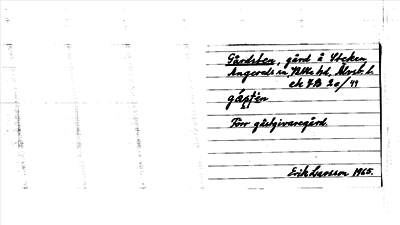 Gårdsten, gård å Stecken,
Angereds sn, Vättle hd, Älvsb. l.
ek 7B 2e/41
gástėn
Förr gästgivaregård.
Erik Larsson 1965.